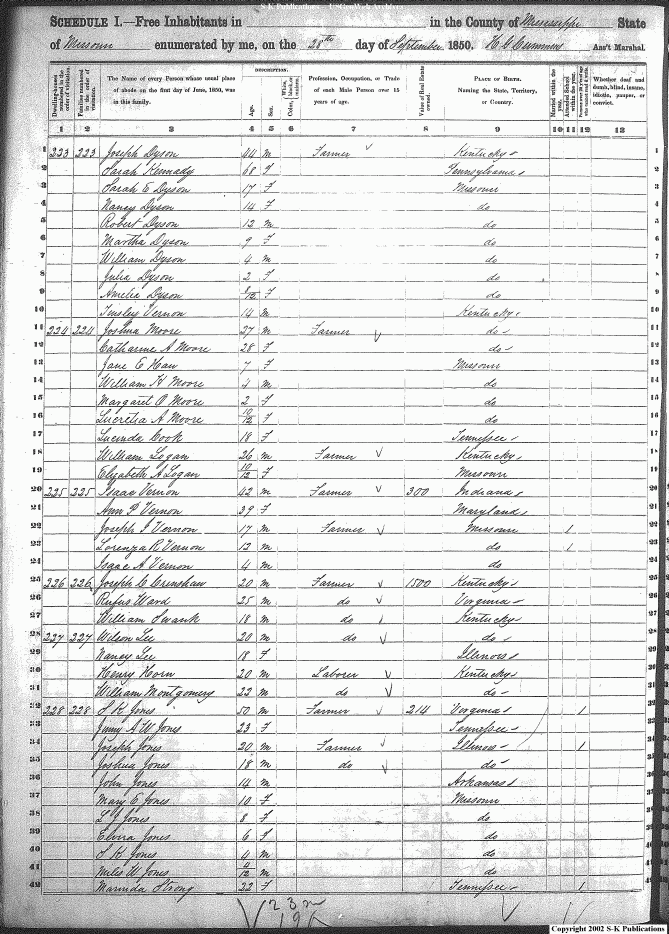 SCHEDULE I.—Free Inhabitants in in the County of Mississippi State
of Missouri enumerated by me, on the 28th day of September 1850. H C Cummins Ass't Marshal.
Dwelling-houses numbered in the order of visitation. Families numbered in the order of visitation. The Name of every Person whose usual place of abode on the first day of June, 1850, was in this family. DESCRIPTION. Age. Sex. Color, White, black, or mulatto. Profession, Occupation, or Trade of each Male Person over 15 years of age. Value of Real Estate owned. PLACE OF BIRTH. Naming the State, Territory, or Country. Married within the year. Attended School within the year. Whether deaf and dumb, blind, insane, idiotic, pauper, or convict.
1 2 3 4 5 6 7 8 9 10 11 12 13
1 223 223 Joseph Dyson 44 m Farmer Kentucky 1
2 Sarah Kennady 68 F Pennsylvania 2
3 Sarah E Dyson 17 F Missouri 3
4 Nancy Dyson 14 F do 4
5 Robert Dyson 12 m do 5
6 Martha Dyson 9 F do 6
7 William Dyson 4 m do 7
8 Julia Dyson 2 F do 8
9 Amelia Dyson 8/12 F do 9
10 Tinsley Vernon 14 m Kentucky 10
11 224 224 Joshua Moore 27 m Farmer do 11
12 Catharine A Moore 28 F do 12
13 Jane E Haw 7 F Missouri 13
14 William H Moore 4 m do 14
15 Margaret O Moore 2 F do 15
16 Lucretia A Moore 10/12 F do 16
17 Lucinda Cook 18 F Tennessee 17
18 William Logan 26 m Farmer Kentucky 18
19 Elizabeth A Logan 10/12 F Missouri 19
20 225 225 Isaac Vernon 42 m Farmer 300 Indiana 20
21 Ann P Vernon 39 F Maryland 21
22 Joseph J Vernon 17 m Farmer Missouri 1 22
23 Lorenza R Vernon 12 m do 1 23
24 Isaac A Vernon 4 m do 24
25 226 226 Joseph C Crenshaw 20 m Farmer 1500 Kentucky 25
26 Rufus Ward 25 m do Virginia 26
27 William Swank 18 m do Kentucky 27
28 227 227 Wilson Lee 20 m do do 28
29 Nancy Lee 18 F Illinois 29
30 Henry Horn 20 m Laborer Kentucky 30
31 William Montgomery 22 m do do 31
32 228 228 S K Jones 50 m Farmer 214 Virginia 1 32
33 Jinny A W Jones 23 F Tennessee 33
34 Joseph Jones 20 m Farmer Illinois 1 34
35 Joshua Jones 18 m do do 35
36 John Jones 14 m Arkansas 36
37 Mary E Jones 10 F Missouri 37
38 L J Jones 8 F do 38
39 Elvira Jones 6 F do 39
40 S K Jones 4 m do 40
41 Miles W Jones 4/12 m do 41
42 Marinda Strong 22 F Tennessee 1 42
Copyright 2002 S-K Publications